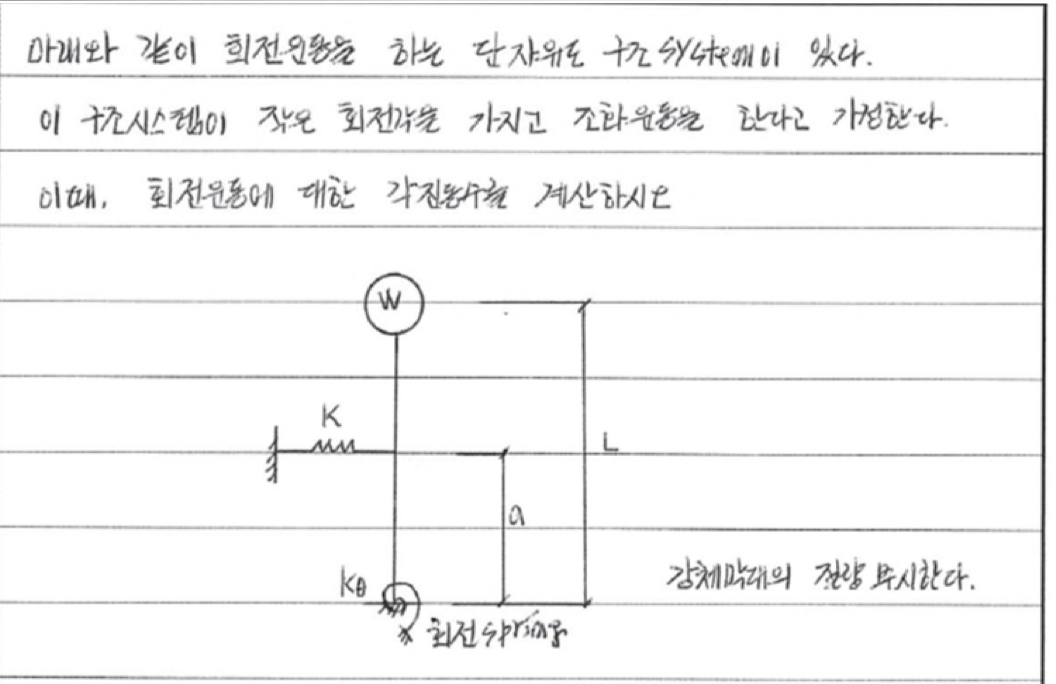 아래와 같이 회전운동을 하는 단자유도 구조 system이 있다.
이 구조시스템이 작은 회전각을 가지고 조화운동을 한다고 가정한다.
이때, 회전운동에 대한 각진동수를 계산하시오
W
K
L
a
강체막대의 질량 무시한다.
Kθ
회전spring